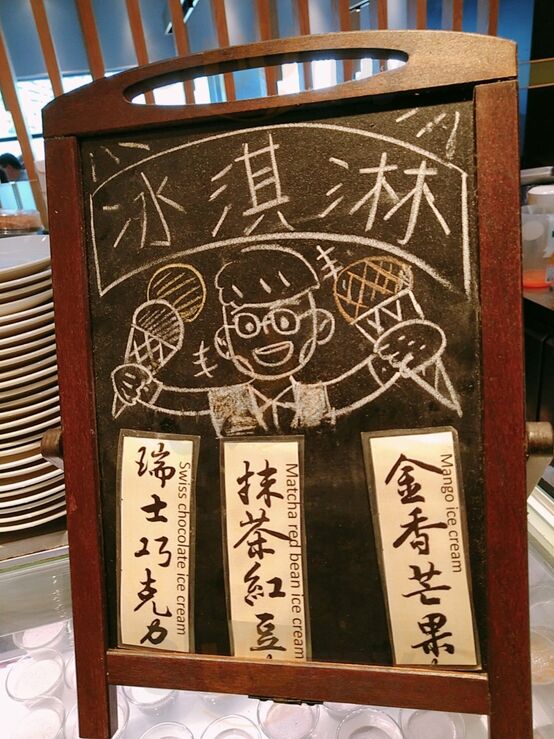 冰淇淋
瑞士巧克力
Swiss chocolate ice cream
抹茶紅豆
Matcha red bean ice cream
金香芒果
Mango ice cream